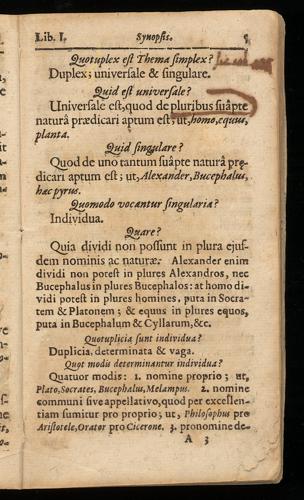 Lib. I. Synopsis. 5
Quotuplex est Thema simplex?
Duplex; universale & singulare.
Quid est universale?
Universale est, quod de pluribus suâpte
naturâ prædicari aptum est; ut, homo, equus,
planta.
Quid singulare?
Quod de uno tantum suâpte naturâ præ-
dicari aptum est; ut, Alexander, Bucephalus,
hæc pyrus.
Quomodo vocantur singularia?
Individua.
Quare?
Quia dividi non possunt in plura ejus-
dem nominis ac naturæ. Alexander enim
dividi non potest in plures Alexandros, nec
Bucephalus in plures Bucephalos: at homo di-
vidi potest in plures homines, puta in Socra-
tem & Platonem; & equus in plures equos,
puta in Bucephalum & Cyllarum, &c.
Quotuplicia sunt individua?
Duplicia, determinata & vaga.
Quot modis determinantur individua?
Quatuor modis: 1. nomine proprio; ut,
Plato, Socrates, Bucephalus, Melampus. 2. nomine
communi sive appellativo, quod per excellen-
tiam sumitur pro proprio; ut, Philosophus pro
Aristotele, Orator pro Cicerone. 3. pronomine de-
A 3